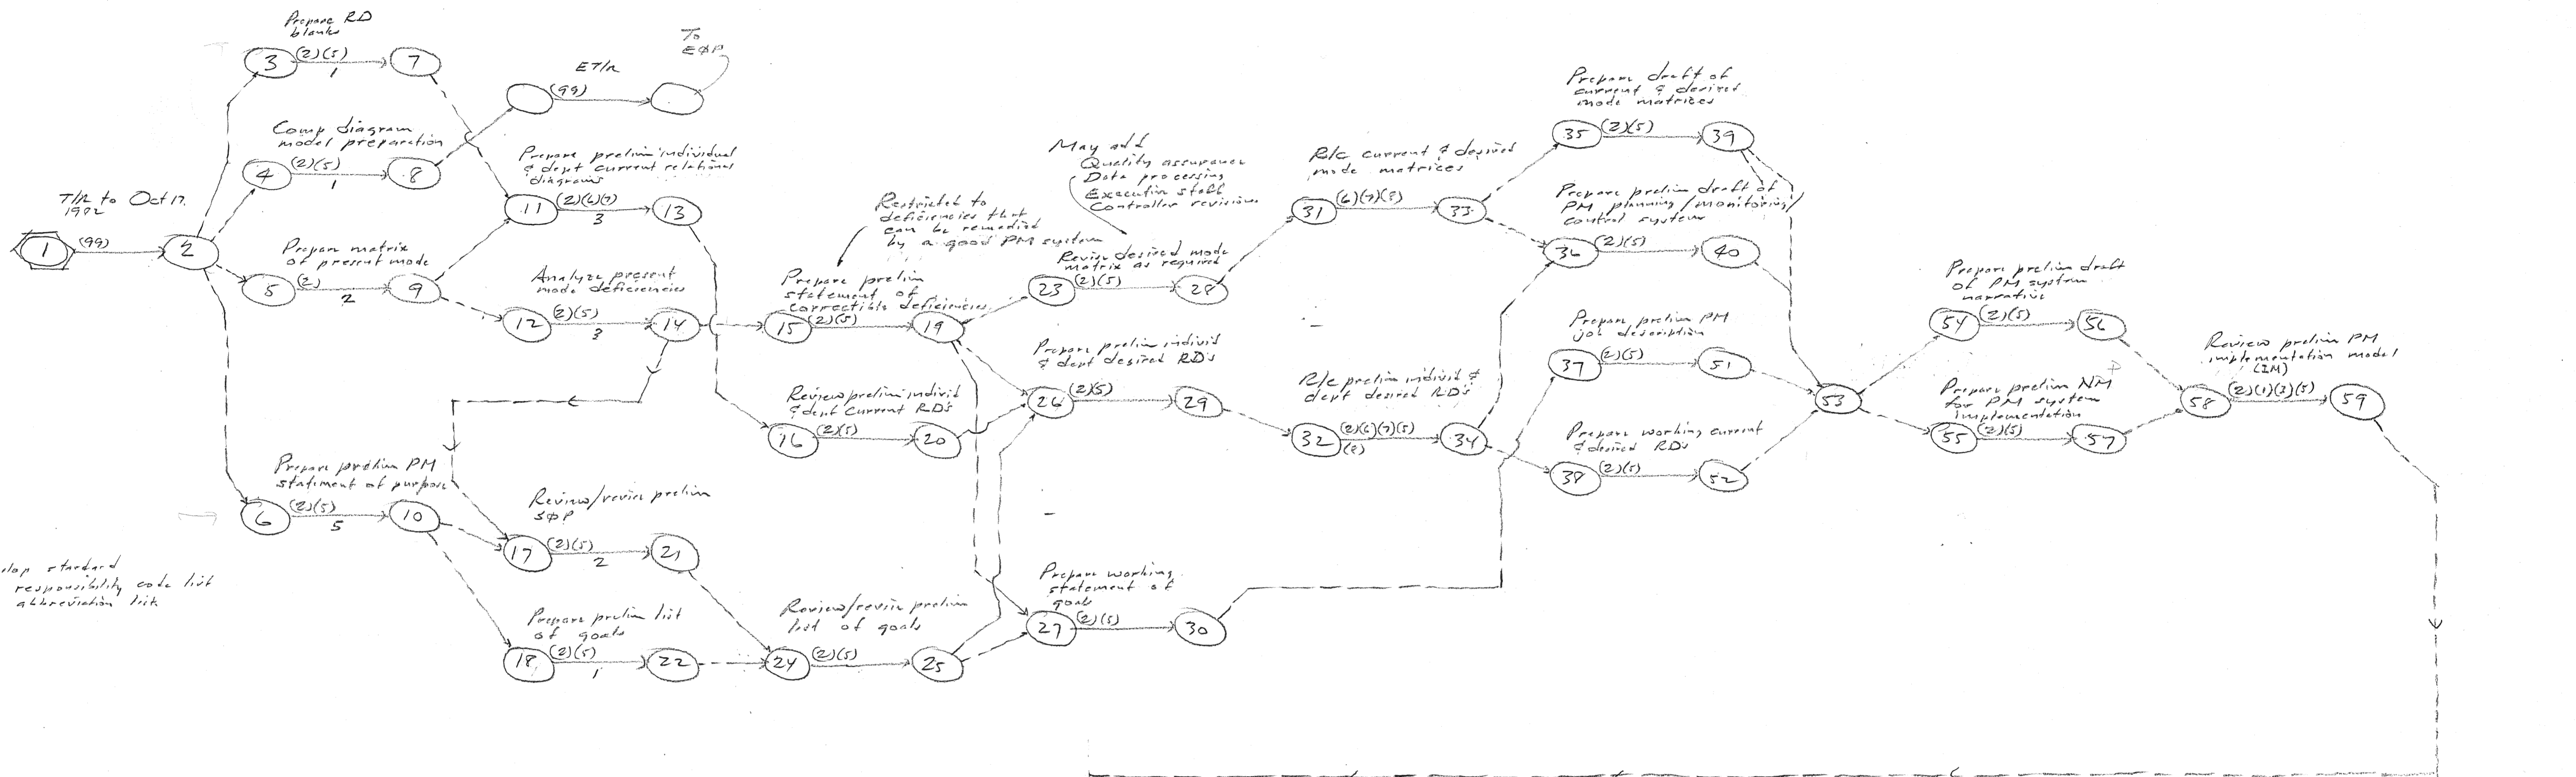 Prepare RD
blanks
3 (2)(5) 7
1
ET/R
(99)
To
EØP
Comp diagram
model preparation
4 (2)(5) 8
1
T/R to Oct 17
1972
1 (99) 2
Prepare matrix
of present mode
5 (2) 9
2
Prepare prelim individual
& dept current relational
diagrams
11 (2)(6)(7) 13
3
Analyze present
mode deficiencies
12 (2)(5) 14
3
Prepare prelim PM
statement of purpose
6 (2)(5) 10
5
standard
responsibility code list
abbreviation list
Review/revise prelim
SØP
17 (2)(5) 21
2
Prepare prelim list
of goals
18 (2)(5) 22
1
Restricted to
deficiencies that
can be remedied
by a good PM system
Prepare prelim
statement of
correctible deficiencies
15 (2)(5) 19
Review prelim individ
& dept current RD's
16 (2)(5) 20
Review/revise prelim
list of goals
24 (2)(5) 25
May add
Quality assurance
Data processing
Executive staff
Controller revisions
Revise desired mode
matrix as required
23 (2)(5) 28
Prepare prelim individ
& dept desired RD's
26 (2)(5) 29
Prepare working
statement of
goals
27 (2)(5) 30
R/c current & desired
mode matrices
31 (6)(7)(8) 33
R/c prelim individ &
dept desired RD's
32 (2)(6)(7)(5) 34
(8)
Prepare draft of
current & desired
mode matrices
35 (2)(5) 39
Prepare prelim draft of
PM planning/monitoring/
control system
36 (2)(5) 40
Prepare prelim PM
job description
37 (2)(5) 51
Prepare working current
& desired RD's
38 (2)(5) 52
53
Prepare prelim draft
of PM system
narrative
54 (2)(5) 56
Prepare prelim NM
for PM system
implementation
55 (2)(5) 57
Review prelim PM
implementation model
(IM)
58 (2)(1)(3)(5) 59